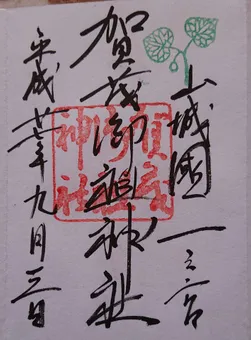 山城國一之宮
賀茂御祖神社
平成 年九月三日
賀茂
御祖
神社